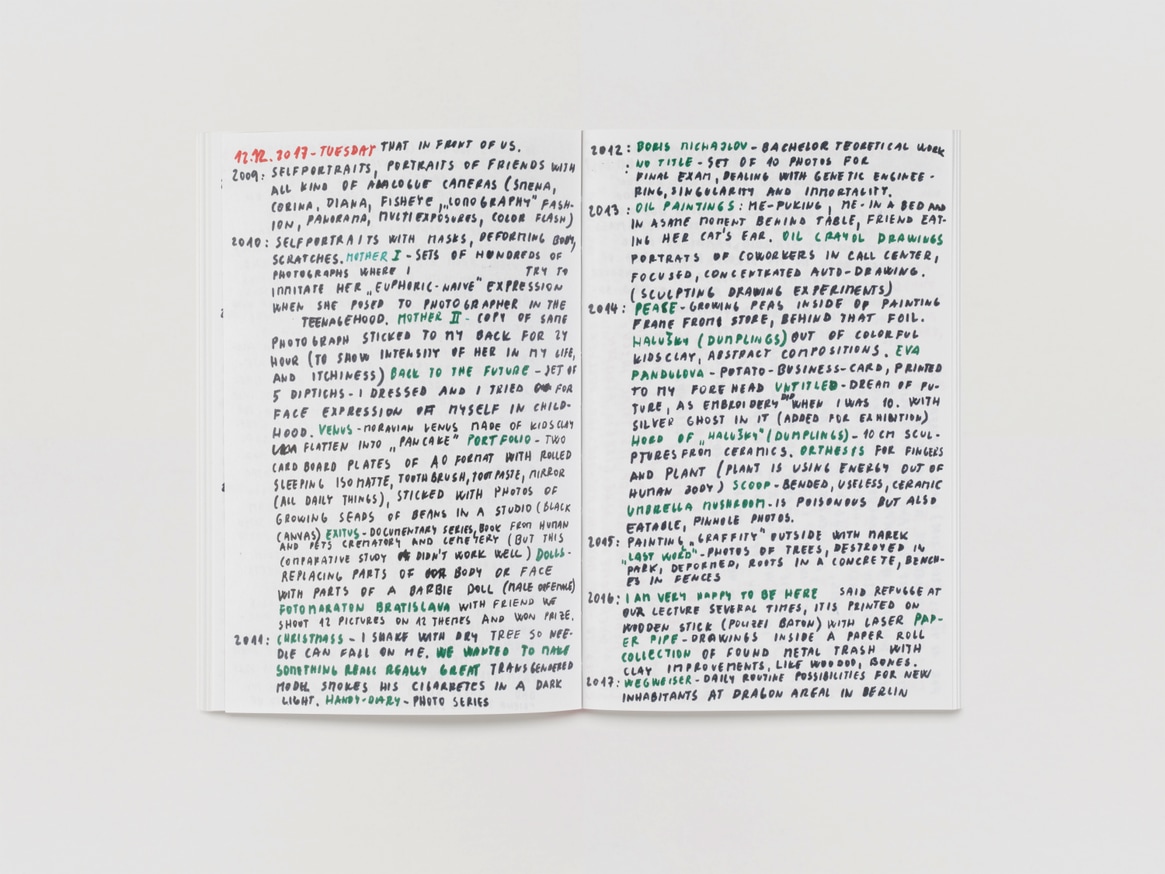 12.12.2017-TUESDAY THAT IN FRONT OF US.
2009: SELFPORTRAITS, PORTRAITS OF FRIENDS WITH
ALL KIND OF ANALOGUE CAMERAS (SMENA,
CORINA, DIANA, FISHEYE „LOMOGRAPHY" FASH-
ION, PANORAMA, MULTIEXPOSURES, COLOR FLASH)
2010: SELFPORTRAITS WITH MASKS, DEFORMING BODY,
SCRATCHES. MOTHER I - SETS OF HUNDREDS OF
PHOTOGRAPHS WHERE I TRY TO
IMMITATE HER „EUPHORIC-NAIVE" EXPRESSION
WHEN SHE POSED TO PHOTOGRAPHER IN THE
TEENAGEHOOD. MOTHER II - COPY OF SAME
PHOTOGRAPH STICKED TO MY BACK FOR 24
HOUR (TO SHOW INTENSITY OF HER IN MY LIFE,
AND ITCHINESS) BACK TO THE FUTURE - SET OF
5 DIPTICHS - I DRESSED AND I TRIED FOR
FACE EXPRESSION OF MYSELF IN CHILD-
HOOD. VENUS - MORAVIAN VENUS MADE OF KIDSCLAY
FLATTEN INTO „PANCAKE" PORTFOLIO - TWO
CARDBOARD PLATES OF A0 FORMAT WITH ROLLED
SLEEPING ISOMATTE, TOOTHBRUSH, TOOTPASTE, MIRROR
(ALL DAILY THINGS), STICKED WITH PHOTOS OF
GROWING SEADS OF BEANS IN A STUDIO (BLACK
CANVAS) EXITUS - DOCUMENTARY SERIES, BOOK FROM HUMAN
AND PETS CREMATORY AND CEMETERY (BUT THIS
COMPARATIVE STUDY DIDN'T WORK WELL) DOLLS -
REPLACING PARTS OF BODY OR FACE
WITH PARTS OF A BARBIE DOLL (MALE & FEMALE)
FOTOMARATON BRATISLAVA WITH FRIEND WE
SHOOT 12 PICTURES ON 12 THEMES AND WON PRIZE.
2011: CHRISTMASS - I SHAKE WITH DRY TREE SO NEE-
DLE CAN FALL ON ME. WE WANTED TO MAKE
SOMETHING REALL REALLY GREAT TRANSGENDERED
MODEL SMOKES HIS CIGARRETES IN A DARK
LIGHT. HANDY-DIARY - PHOTO SERIES
2012: BORIS MICHAJLOV - BACHELOR TEORETICAL WORK
NO TITLE - SET OF 10 PHOTOS FOR
FINAL EXAM, DEALING WITH GENETIC ENGINEE-
RING, SINGULARITY AND IMMORTALITY.
2013: OIL PAINTINGS: ME-PUKING, ME-IN A BED AND
IN A SAME MOMENT BEHIND TABLE, FRIEND EAT-
ING HER CAT'S EAR. OIL CRAYOL DRAWINGS
PORTRAITS OF COWORKERS IN CALL CENTER,
FOCUSED, CONCENTRATED AUTO-DRAWING.
(SCULPTING DRAWING EXPERIMENTS)
2014: PEASE - GROWING PEAS INSIDE OF PAINTING
FRAME FROM STORE, BEHIND THAT FOIL.
HALUŠKY (DUMPLINGS) OUT OF COLORFUL
KIDSCLAY, ABSTRACT COMPOSITIONS. EVA
PANDULOVA - POTATO-BUSINESS-CARD, PRINTED
TO MY FOREHEAD UNTITLED - DREAM OF FU-
TURE, AS EMBROIDERY DID WHEN I WAS 10. WITH
SILVER GHOST IN IT (ADDED FOR EXHIBITION)
HORD OF „HALUŠKY" (DUMPLINGS) - 10 CM SCUL-
PTURES FROM CERAMICS. ORTHESIS FOR FINGERS
AND PLANT (PLANT IS USING ENERGY OUT OF
HUMAN BODY) SCOOP - BENDED, USELESS, CERAMIC
UMBRELLA MUSHROOM - IS POISONOUS BUT ALSO
EATABLE, PINHOLE PHOTOS.
2015: PAINTING „GRAFFITY" OUTSIDE WITH MAREK
„LAST WORD" - PHOTOS OF TREES, DESTROYED IN
PARK, DEFORMED, ROOTS IN A CONCRETE, BENCH-
ES IN FENCES
2016: I AM VERY HAPPY TO BE HERE SAID REFUGGE AT
OUR LECTURE SEVERAL TIMES, IT IS PRINTED ON
WOODEN STICK (POLIZEI BATON) WITH LASER PAP-
ER PIPE - DRAWINGS INSIDE A PAPER ROLL
COLLECTION OF FOUND METAL TRASH WITH
CLAY IMPROVEMENTS, LIKE WOODOO, BONES.
2017: WEGWEISER - DAILY ROUTINE POSSIBILITIES FOR NEW
INHABITANTS AT DRAGON AREAL IN BERLIN